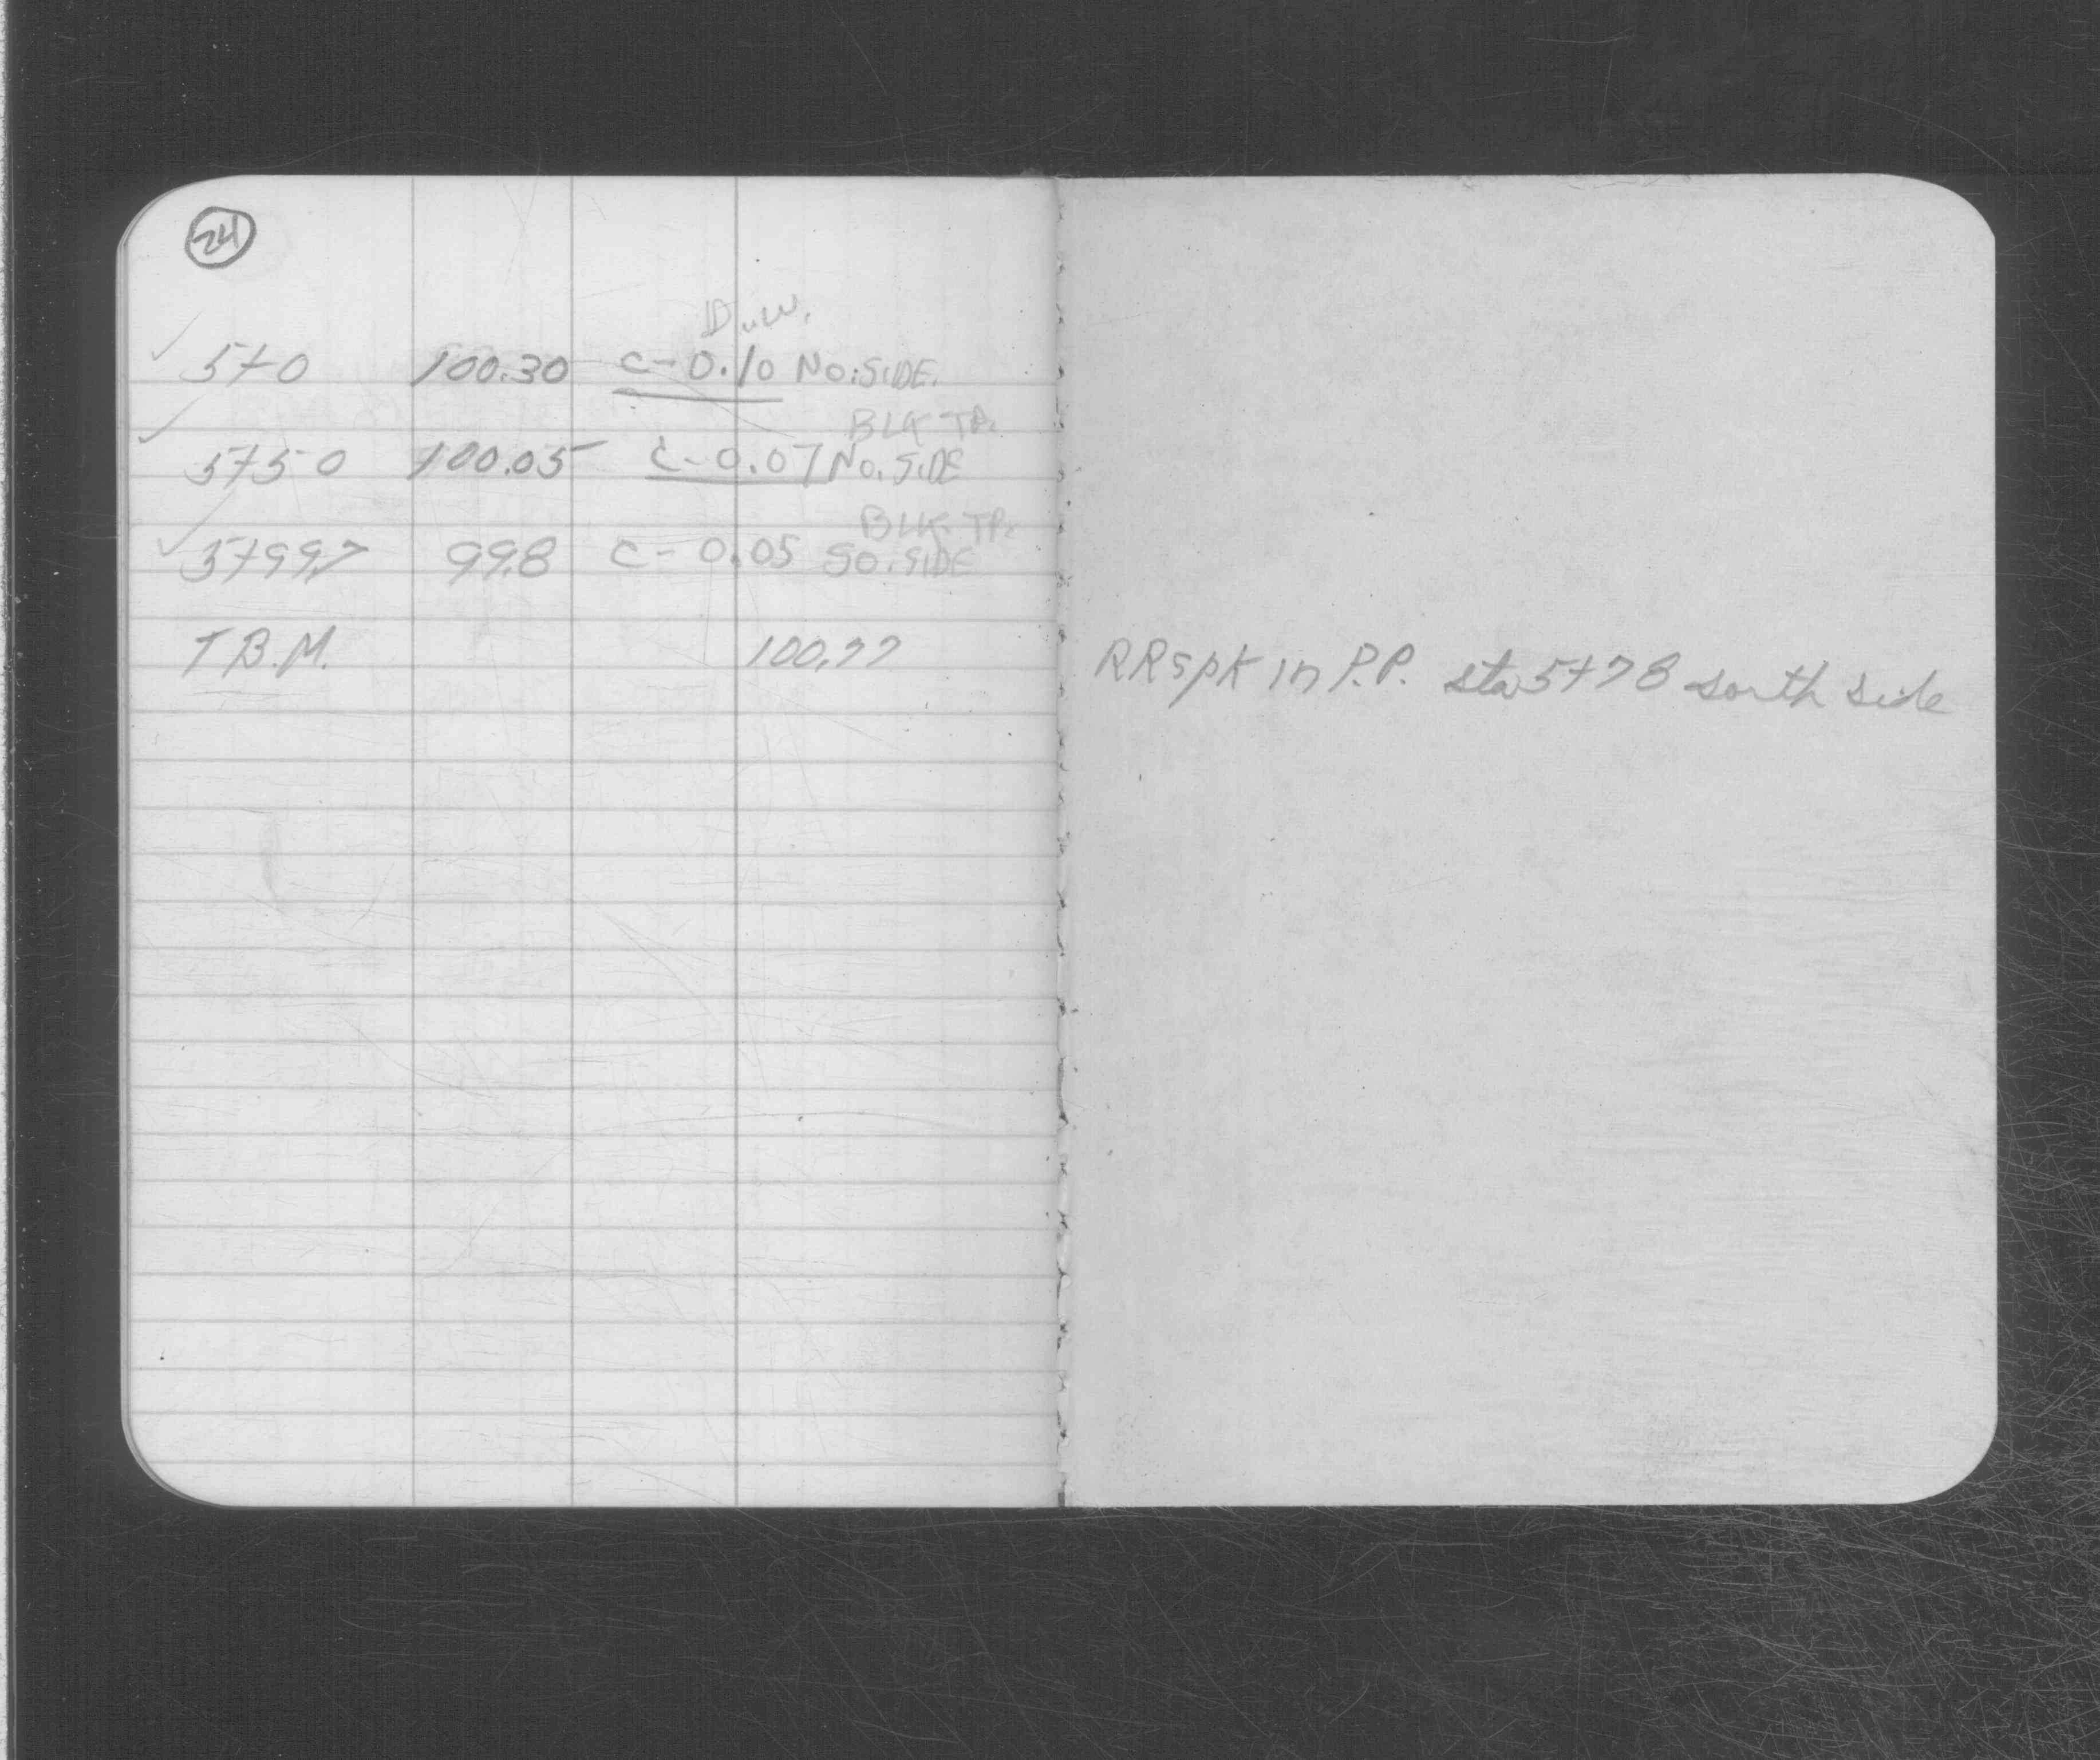 24
D.W.
✓ 5+0 100.30 C-0.10 NO. SIDE.
BLK TP.
✓ 5+50 100.05 C-0.07 NO. SIDE
BLK TP.
✓ 5+99.7 99.8 C-0.05 SO. SIDE
T.B.M. 100.77 RRspk in P.P. sta 5+78 south side